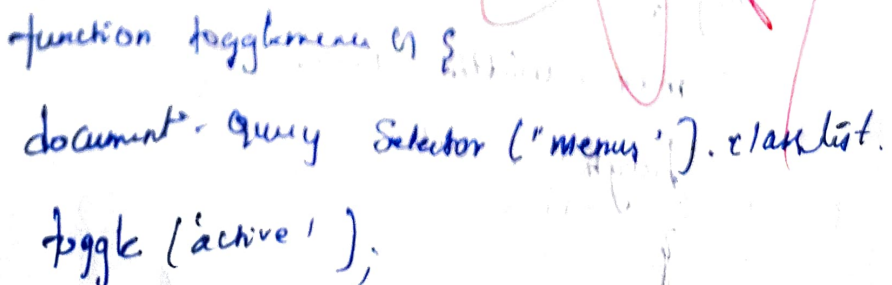 function togglemenu () {
document. query Selector ("menus'). classlist.
toggle ('active');